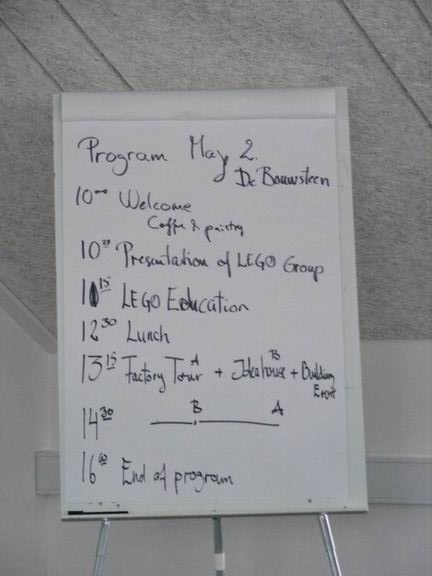 Program May 2.
De Bouwsteen
10⁰⁰ Welcome
Coffe & paistry
10²⁰ Presentation of LEGO Group
11¹⁵ LEGO Education
12³⁰ Lunch
A B
13¹⁵ Factory Tour + Ideahouse + Building
Event
B A
14³⁰
16⁰⁰ End of program